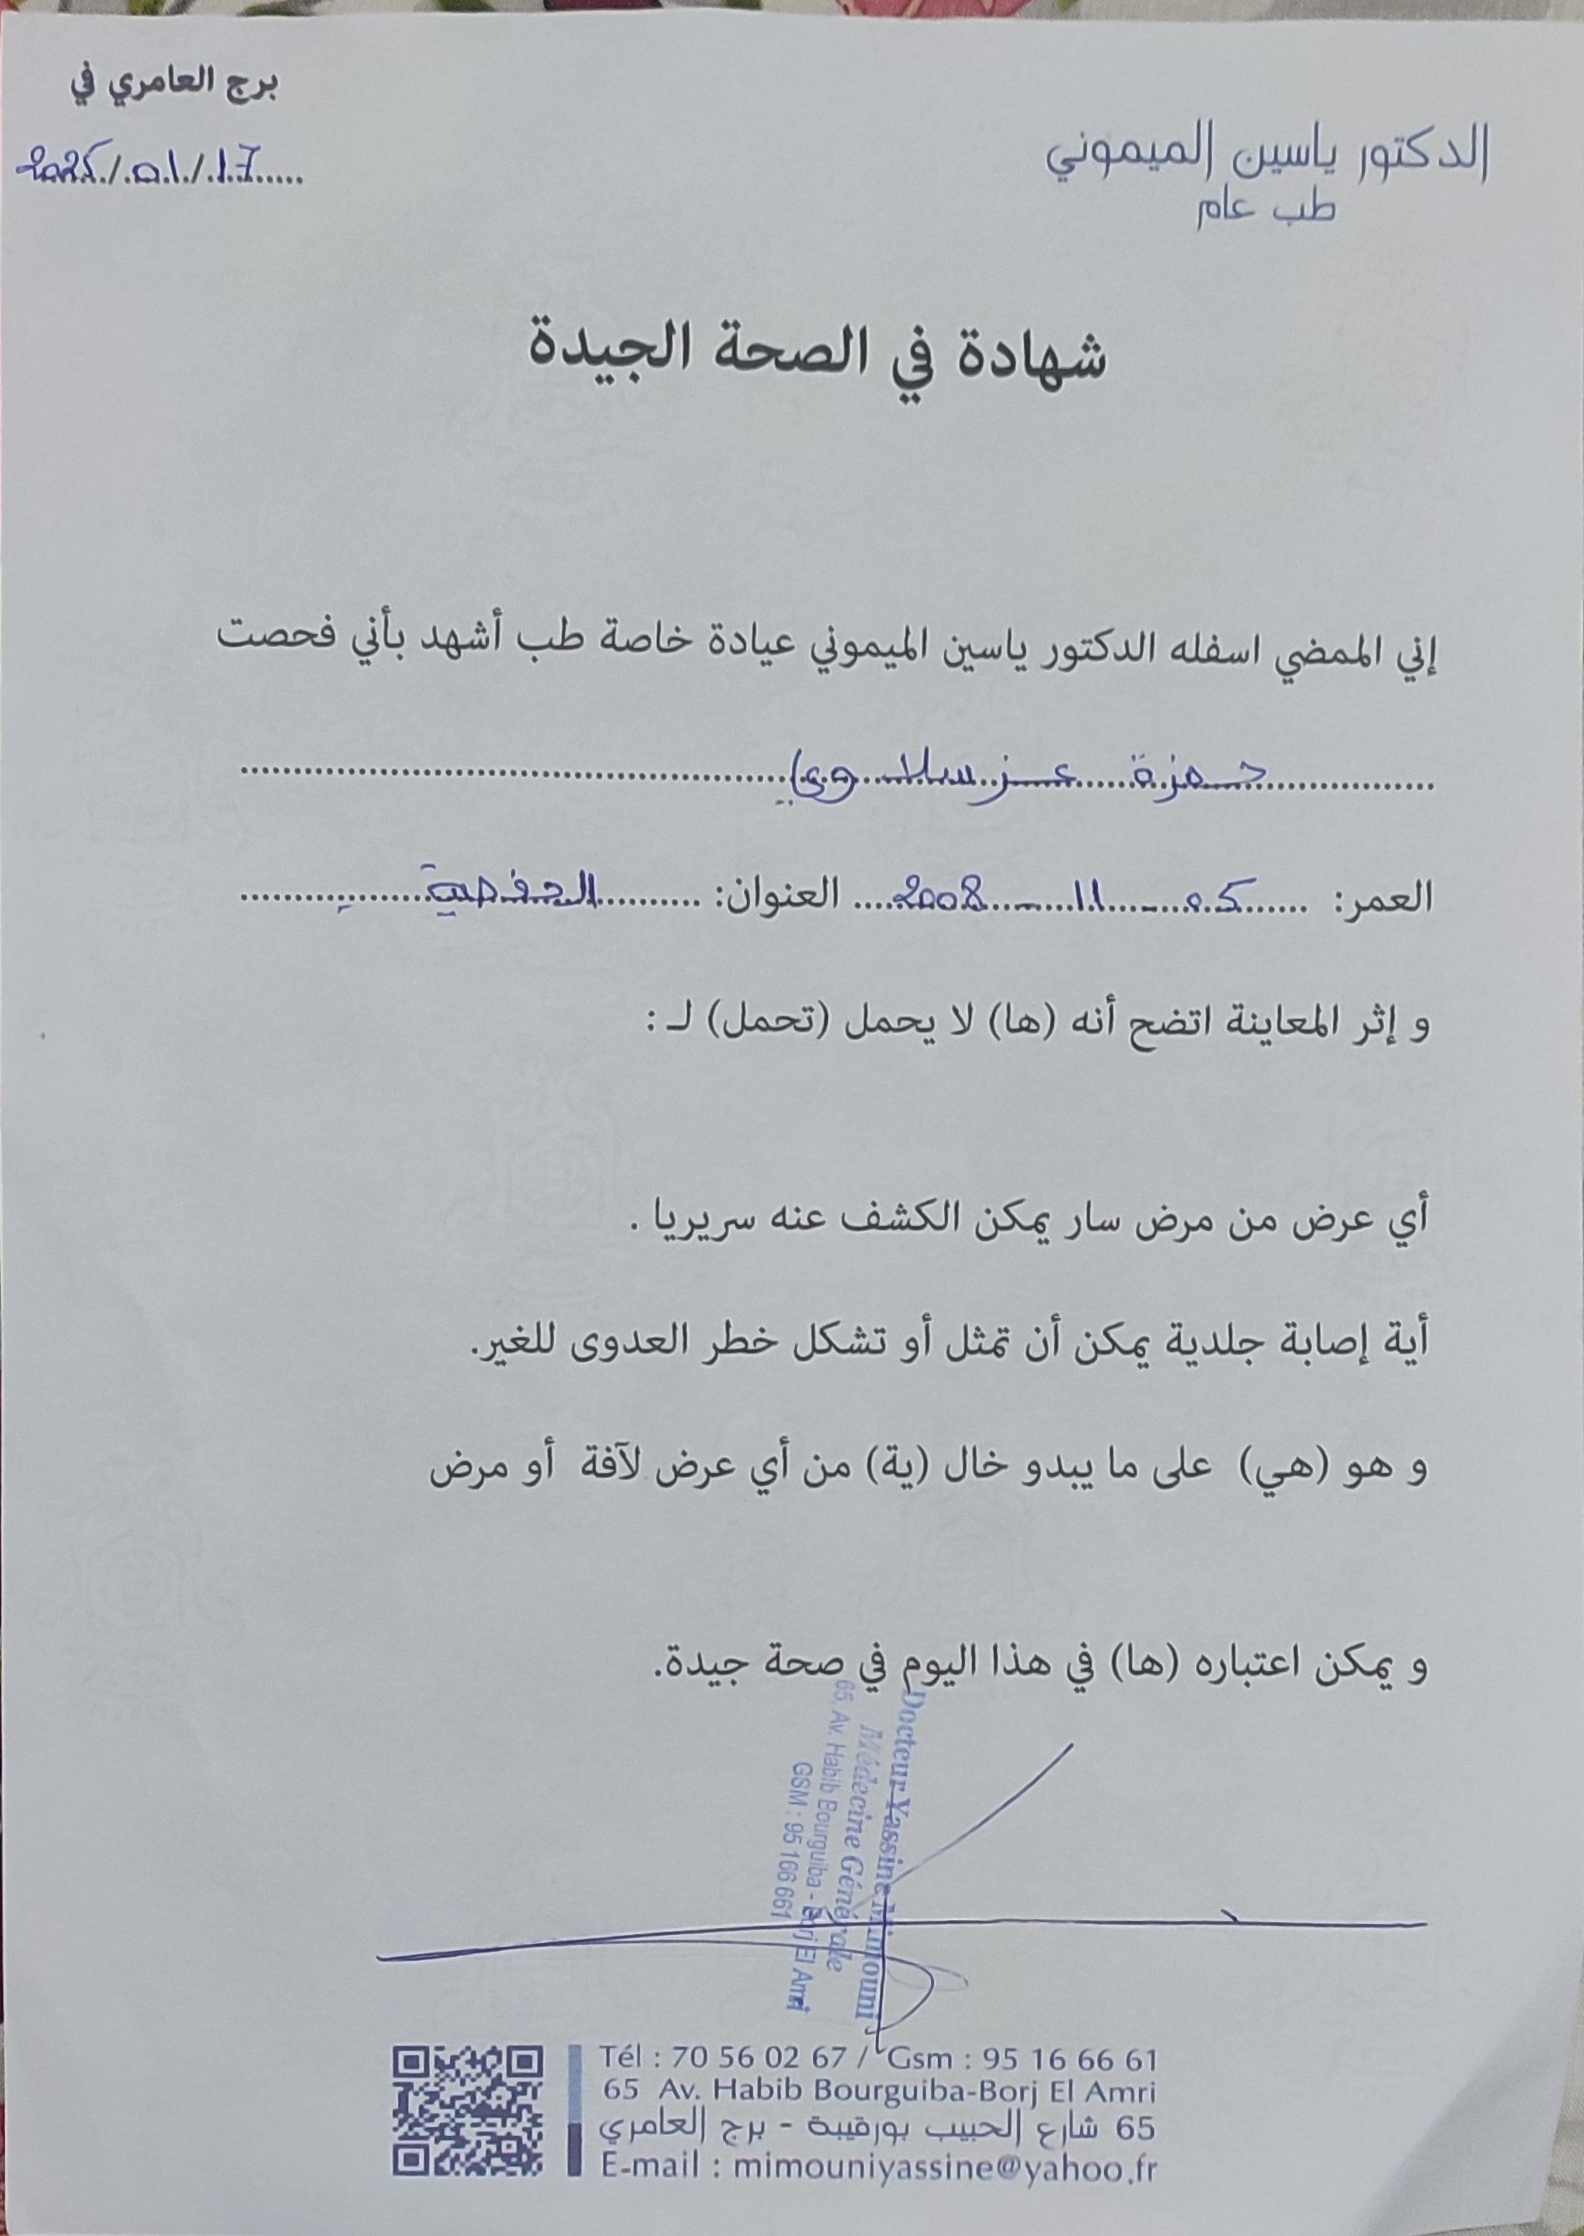 برج العامري في
17/01/2025
الدكتور ياسين الميموني
طب عام
شهادة في الصحة الجيدة
إني الممضي اسفله الدكتور ياسين الميموني عيادة خاصة طب أشهد بأني فحصت
حمزة عز سلاوي
العمر: 05 - 11 - 2008 العنوان:
و إثر المعاينة اتضح أنه (ها) لا يحمل (تحمل) لـ :
أي عرض من مرض سار يمكن الكشف عنه سريريا .
أية إصابة جلدية يمكن أن تمثل أو تشكل خطر العدوى للغير.
و هو (هي) على ما يبدو خال (ية) من أي عرض لآفة أو مرض
و يمكن اعتباره (ها) في هذا اليوم في صحة جيدة.
Docteur Yassine Mimouni
Médecine Générale
65, Av. Habib Bourguiba - Borj El Amri
GSM : 95 166 661
Tél : 70 56 02 67 / Gsm : 95 16 66 61
65 Av. Habib Bourguiba-Borj El Amri
65 شارع الحبيب بورقيبة - برج العامري
E-mail : mimouniyassine@yahoo.fr